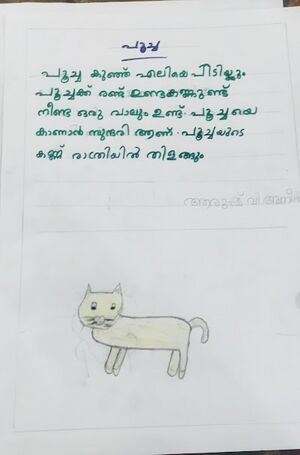 പൂച്ച
പൂച്ച കുഞ്ഞ് എലിയെ പിടിയ്ക്കും
പൂച്ചക്ക് രണ്ട് ഉണ്ടകണ്ണുണ്ട്
നീണ്ട ഒരു വാലും ഉണ്ട്. പൂച്ചയെ
കാണാൻ സുന്ദരി ആണ്. പൂച്ചയുടെ
കണ്ണ് രാത്രിയിൽ തിളങ്ങും
ആരുഷ് വി.